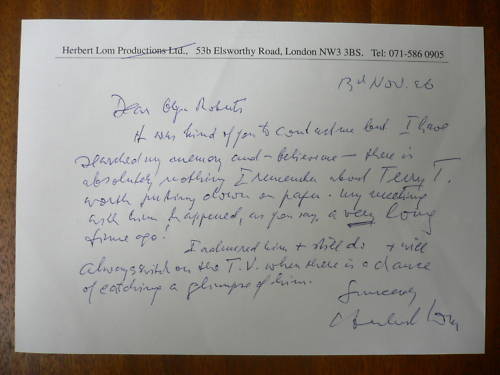 Herbert Lom Productions Ltd., 53b Elsworthy Road, London NW3 3BS. Tel: 071-586 0905
Nov. 96
Dear Glyn Roberts
It was kind of you to contact me but I have
searched my memory and - believe me - there is
absolutely nothing I remember about Terry T.
worth putting down on paper. My meeting
with him happened, as you say, a very long
time ago!
I admired him + still do + will
always switch on the T.V. when there is a chance
of catching a glimpse of him.
Sincerely
Herbert Lom